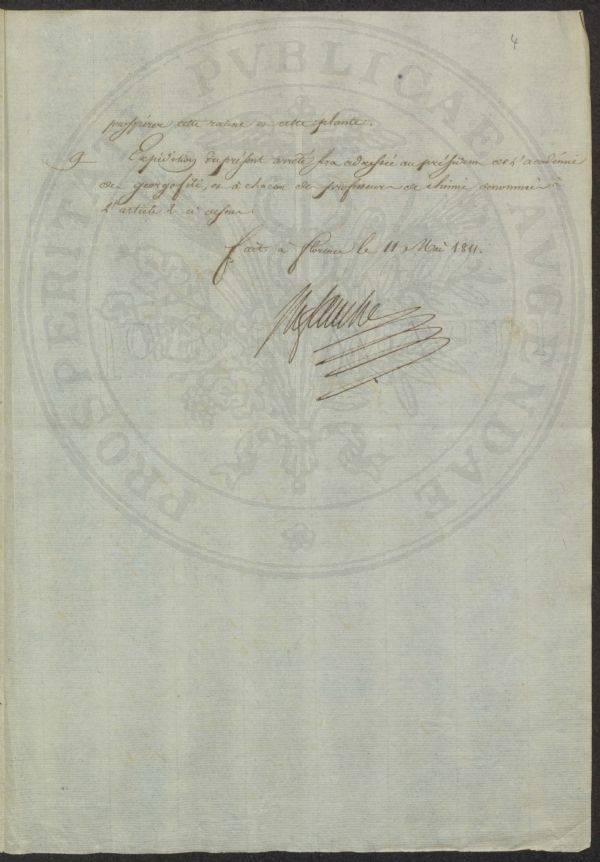 4
prospérer cette racine et cette plante.
9 Expédition du présent arrêté sera adressée au président de l'académie
des georgofili, et à chacun des professeurs de chimie denommés à
l'article 2 ci dessus.
Fait à florence le 11 Mai 1811.
PROSPERITATI PVBLICAE AVGENDAE